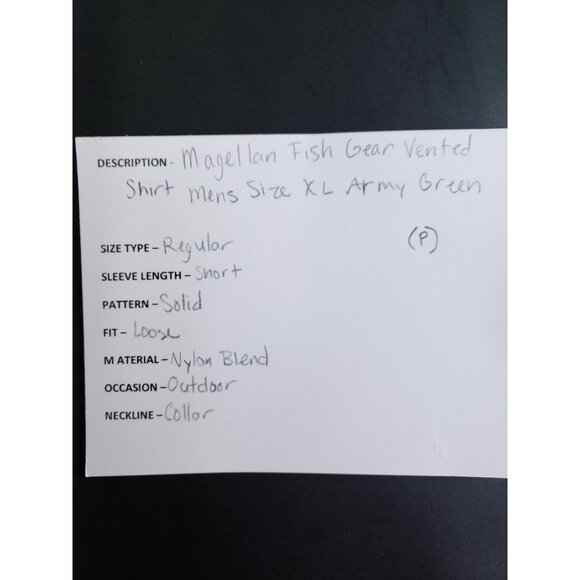 DESCRIPTION - Magellan Fish Gear Vented
Shirt Mens Size XL Army Green
SIZE TYPE - Regular (P)
SLEEVE LENGTH - Short
PATTERN - Solid
FIT - Loose
MATERIAL - Nylon Blend
OCCASION - Outdoor
NECKLINE - Collar